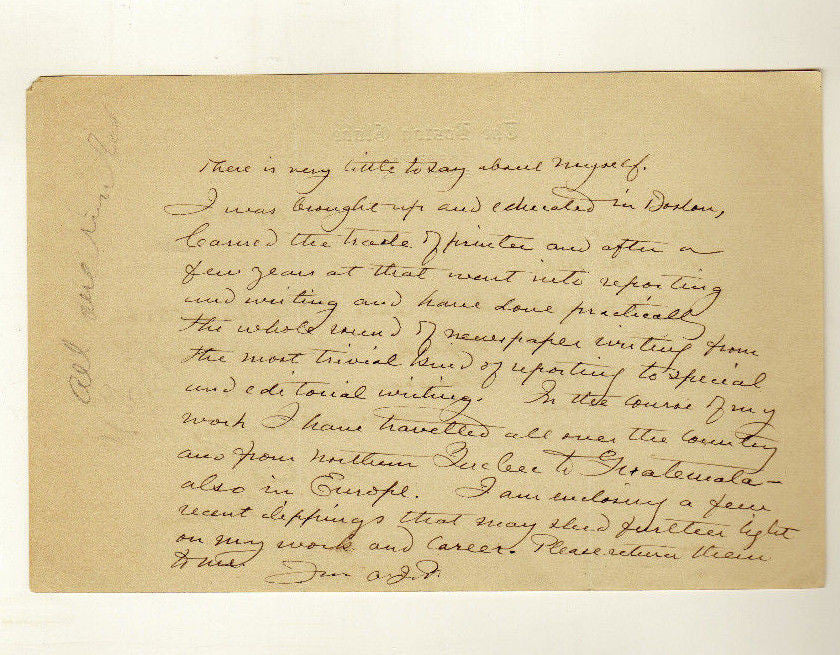 There is very little to say about myself.
I was brought up and educated in Boston,
learned the trade of printer and after a
few years at that went into reporting
and writing and have done practically
the whole round of newspaper writing from
the most trivial kind of reporting to special
and editorial writing. In the course of my
work I have travelled all over the country
and from northern Quebec to Guatemala —
also in Europe. I am enclosing a few
recent clippings that may shed further light
on my work and career. Please return them
to me.
All
The Boston